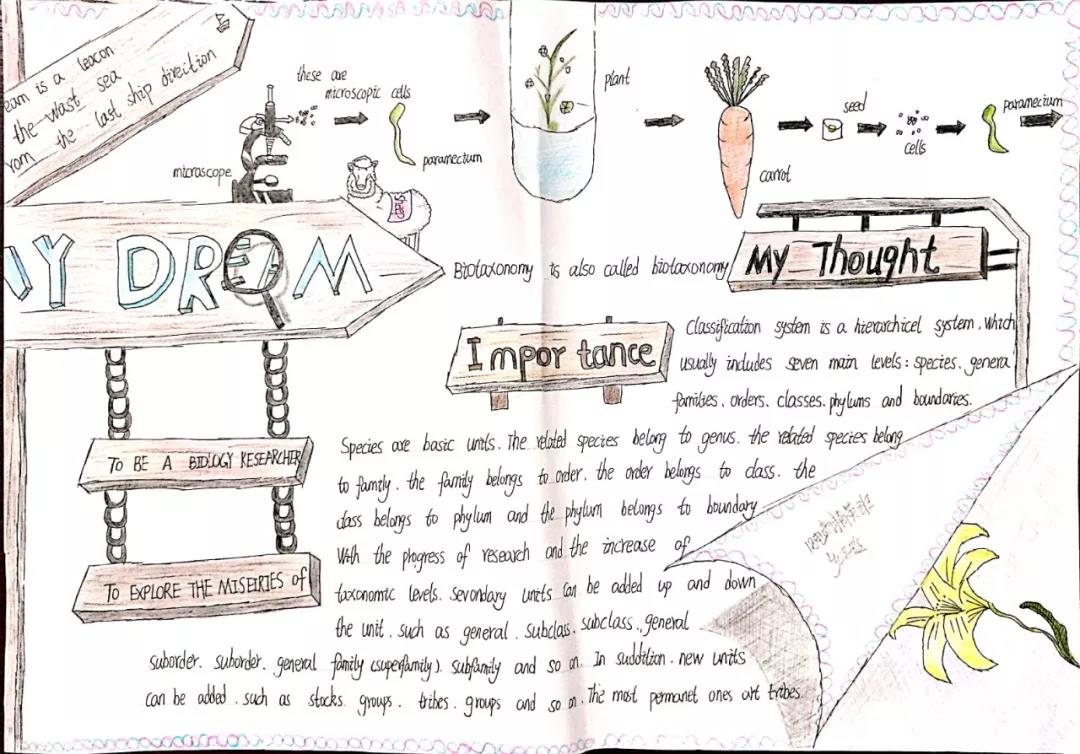 eam is a leacon
the wast sea
rom the last ship direction
these are
microscopic cells
paramectum
microscope
plant
carrot
seed
cells
paramecium
sheep
MY DREAM
Biotaxonomy is also called biotaxonomy
My Thought
Importance
Classification system is a hierarchicel system. Which
usually includes seven main levels: species. genera
families. orders. classes. phylums and boundaries.
Species are basic units. The related species belong to genus. the related species belong
to family. the family belongs to order. the order belongs to class. the
class belongs to phylum and the phylum belongs to boundary
With the progress of research and the increase of
taxonomic levels. sevondary units can be added up and down
the unit. such as general. subclass. subclass. general
suborder. suborder. general family (superfamily). subfamily and so on. In suddition. new units
can be added. such as stocks groups. tribes. groups and so on. The most permanet ones art tribes.
TO BE A BIOLOGY RESEARCHER
TO EXPLORE THE MISEIRIES of